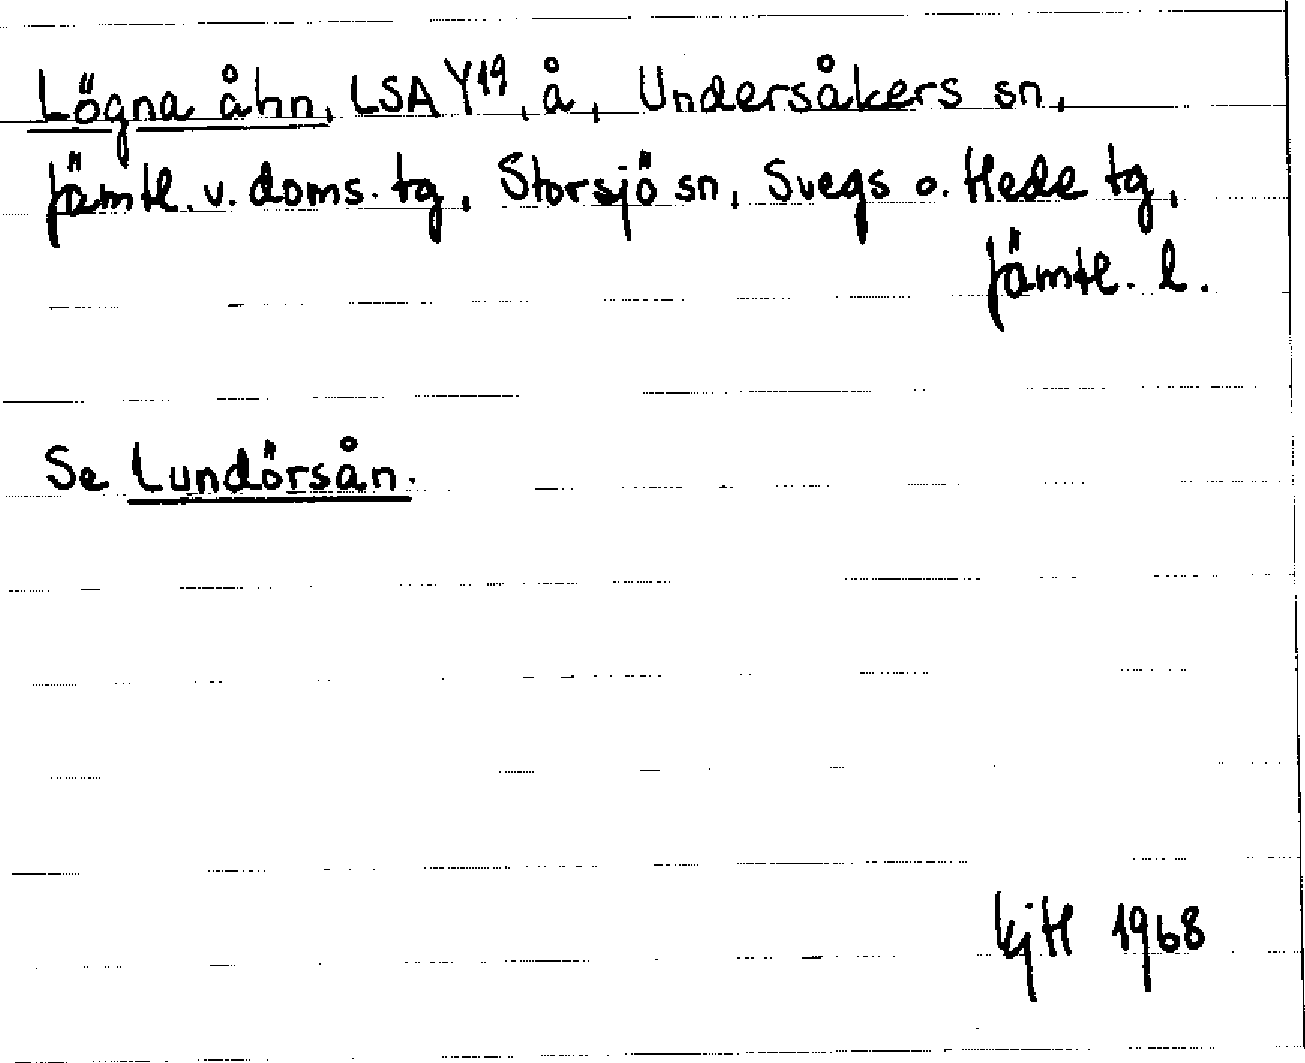 Lögna åhn, LSA Y19, å, Undersåkers sn,
Jämtl. v. doms. tg, Storsjö sn, Svegs o. Hede tg,
Jämtl. l.
Se Lundörsån.
KjH 1968